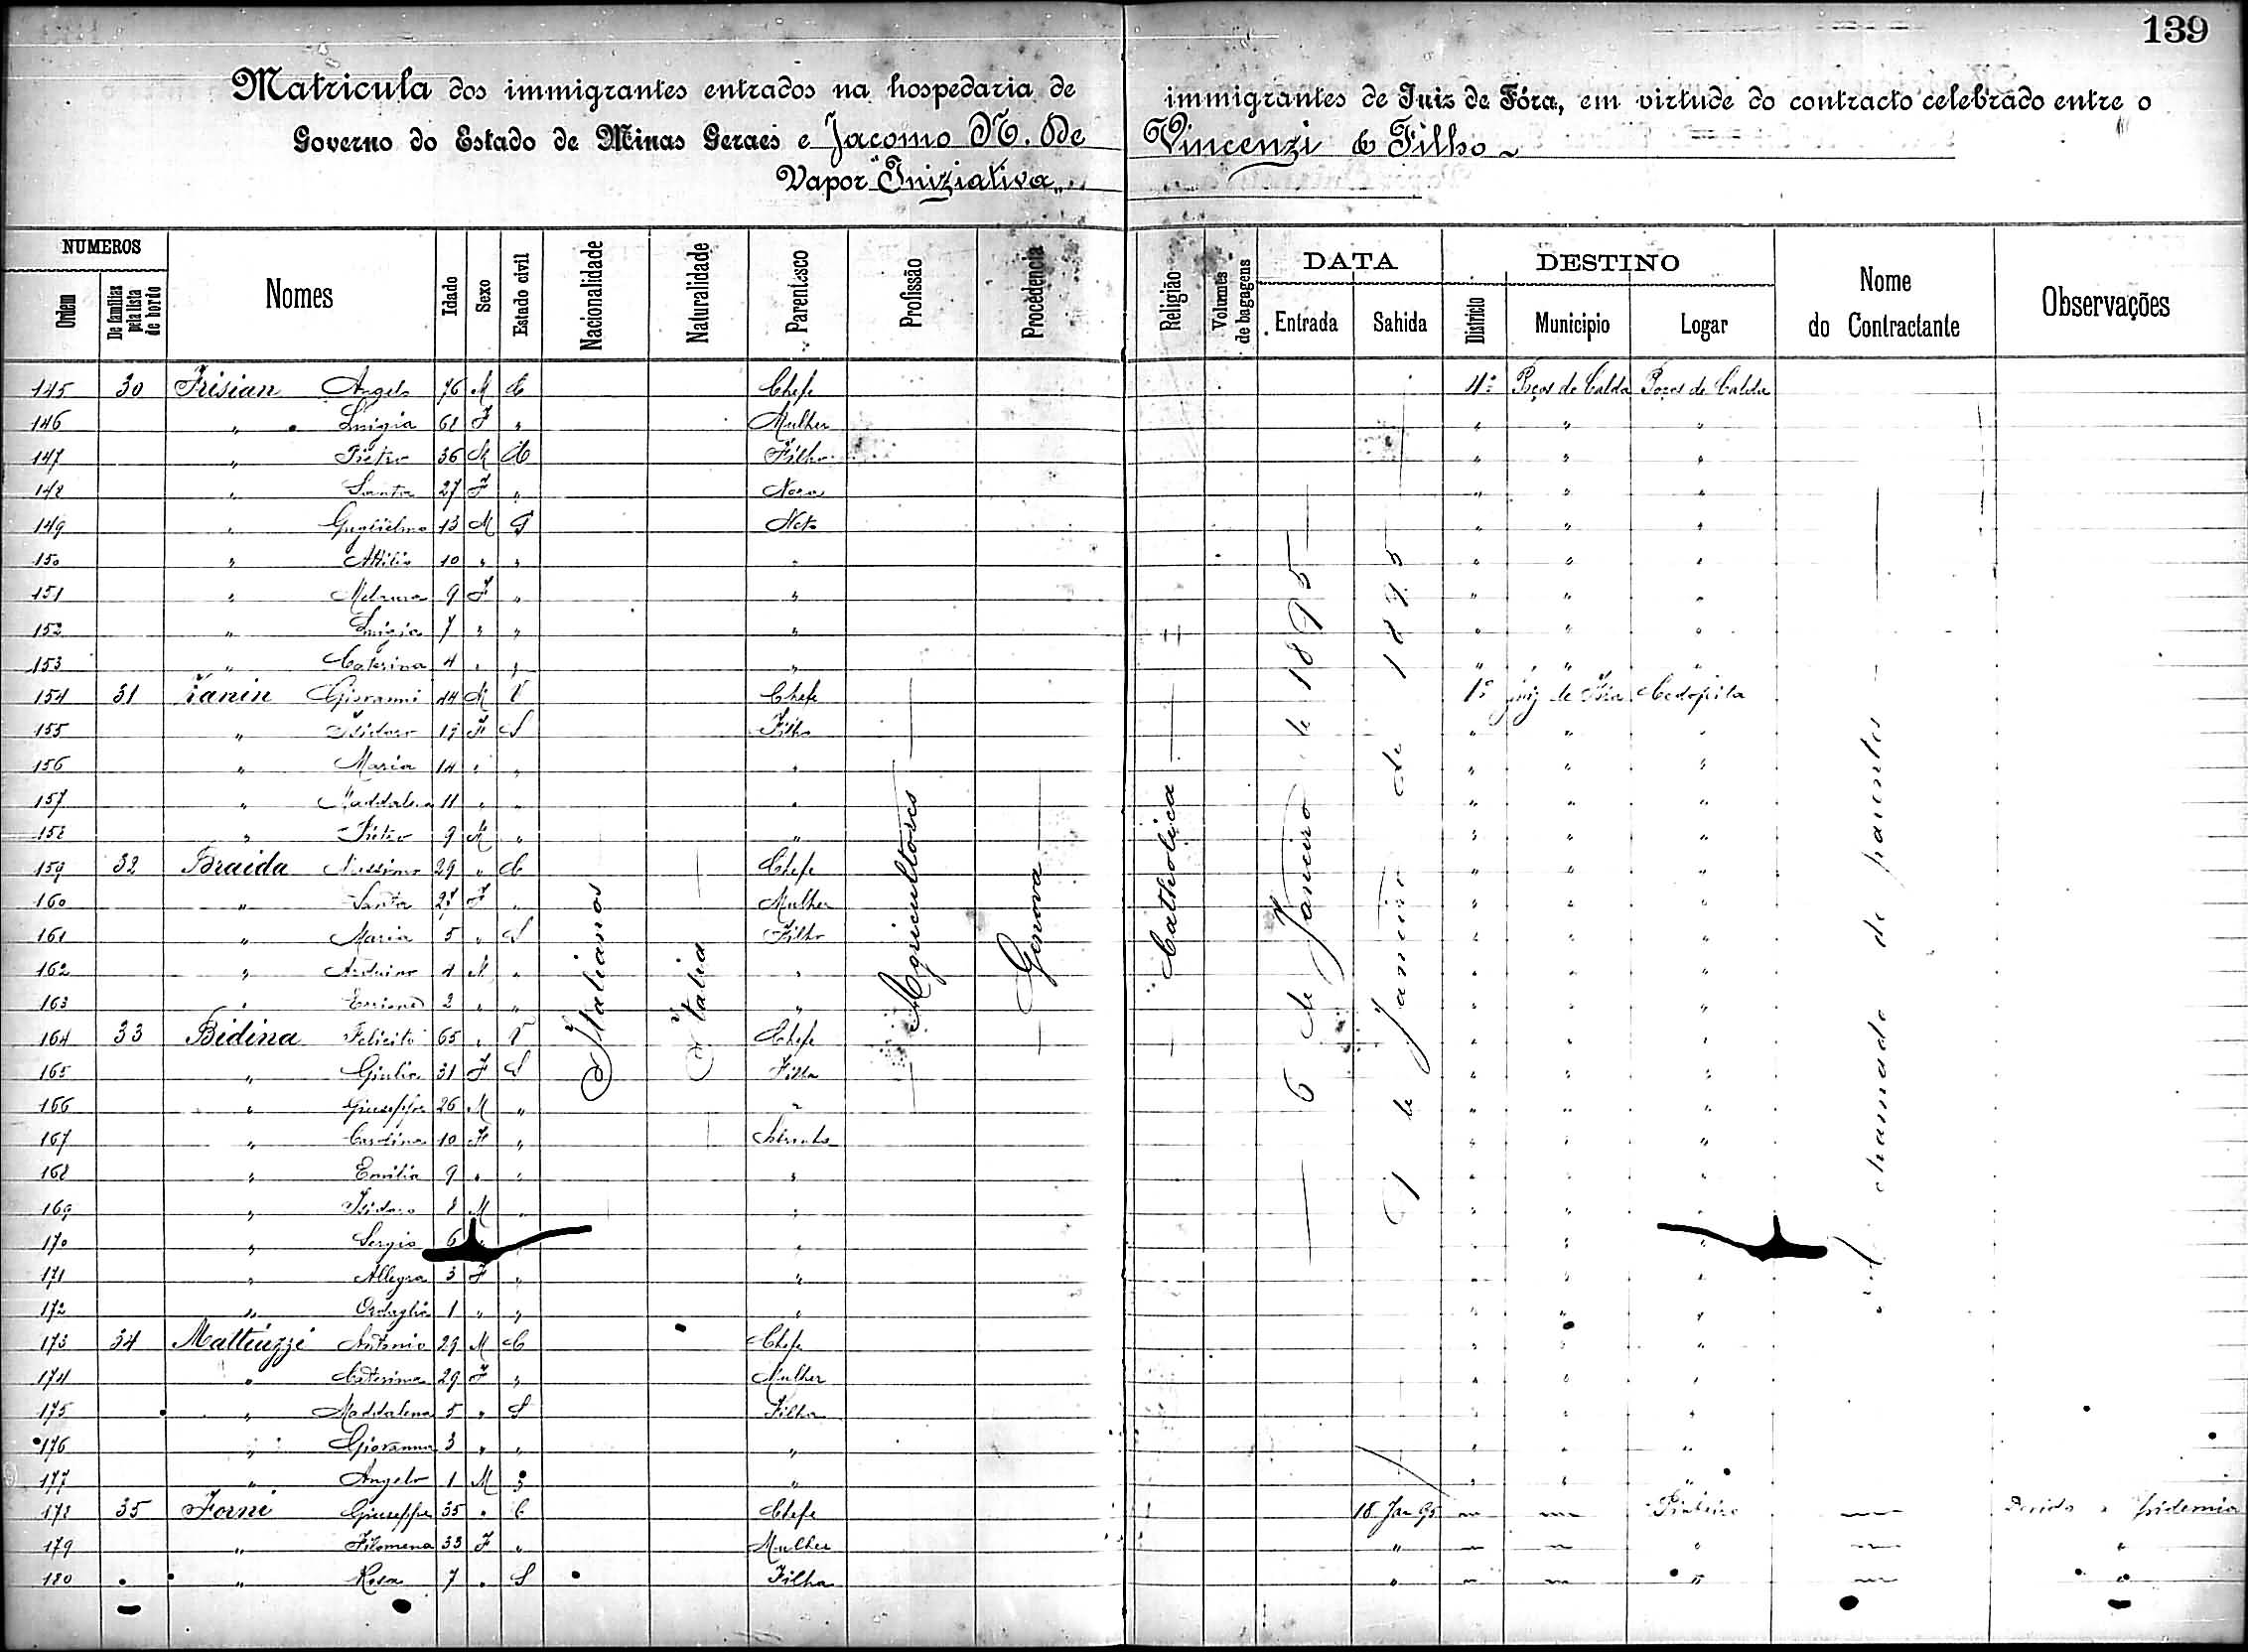 139
Matricula dos immigrantes entrados na hospedaria de immigrantes de Juiz de Fóra, em virtude do contracto celebrado entre o
Governo do Estado de Minas Geraes e Jacomo N. De Vincenzi & Filho
Vapor "Iniziativa"
NUMEROS DATA DESTINO
Ordem De familias pela lista de bordo Nomes Idade Sexo Estado civil Nacionalidade Naturalidade Parentesco Profissão Procedencia Religião Volumes de bagagens Entrada Sahida Districto Municipio Logar Nome do Contractante Observações
145 30 Frisian Angelo 76 M C Chefe 4º Poços de Calda Poços de Calda
146 " Luigia 61 F " Mulher " " "
147 " Pietro 36 M C Filho " " "
148 " Santa 27 F " Nora " " "
149 " Guglielmo 13 M S Neto " " "
150 " Attilio 10 " " " " " "
151 " 9 F " " " " "
152 " Luigia 7 " " " " " "
153 " Caterina 4 " " " " " "
154 31 Zanin Giovanni 44 M V Chefe 1º Juiz de Fóra
155 " Isidoro 17 F S Filho " " "
156 " Maria 14 " " " " " "
157 " Maddalena 11 " " " " " "
158 " Pietro 9 M " " " " "
159 32 Braida 29 " C Chefe " " "
160 " Santa 27 F " Mulher " " "
161 " Maria 5 " S Filho " " "
162 " 4 M " " " " "
163 " " " " " " "
164 33 Bidina Felicito 65 " V Chefe " " "
165 " Giulia 31 F S Filha " " "
166 " Giuseppe 26 M " " " " "
167 " Carolina 10 F " " " "
168 " Emilia 9 " " " " " "
169 " Isidoro 8 M " " " " "
170 " Sergio 6 " " " " "
171 " Allegra 3 F " " " " "
172 " 1 " " " " " "
173 34 Mattiuzzi Antonio 29 M C Chefe " " "
174 " Caterina 29 F " Mulher " " "
175 " Maddalena 5 " S Filha " " "
176 " Giovanna 3 " " " " " "
177 " Angelo 1 M " " " " "
178 35 Forni Giuseppe 35 " C Chefe 18 Jan 95 Pinheiro Devido a epidemia
179 " Filomena 33 F " Mulher " " "
180 " Rosa 7 " S Filha " " "
Italianos
Italia
Agricultores
Genova
Catholica
6 de Janeiro de 1895
9 de Janeiro de 1895
chamado de parentes